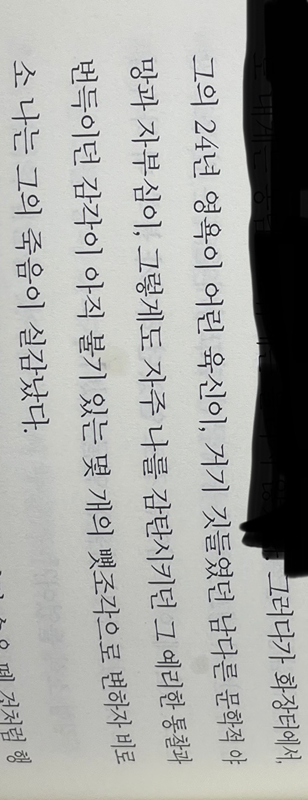 그러다가 화장터에서,
그의 24년 영욕이 어린 육신이, 거기 깃들였던 남다른 문학적 야
망과 자부심이, 그렇게도 자주 나를 감탄시키던 그 예리한 통찰과
번득이던 감각이 아직 불기 있는 몇 개의 뼛조각으로 변하자 비로
소 나는 그의 죽음이 실감났다.
것처럼 행